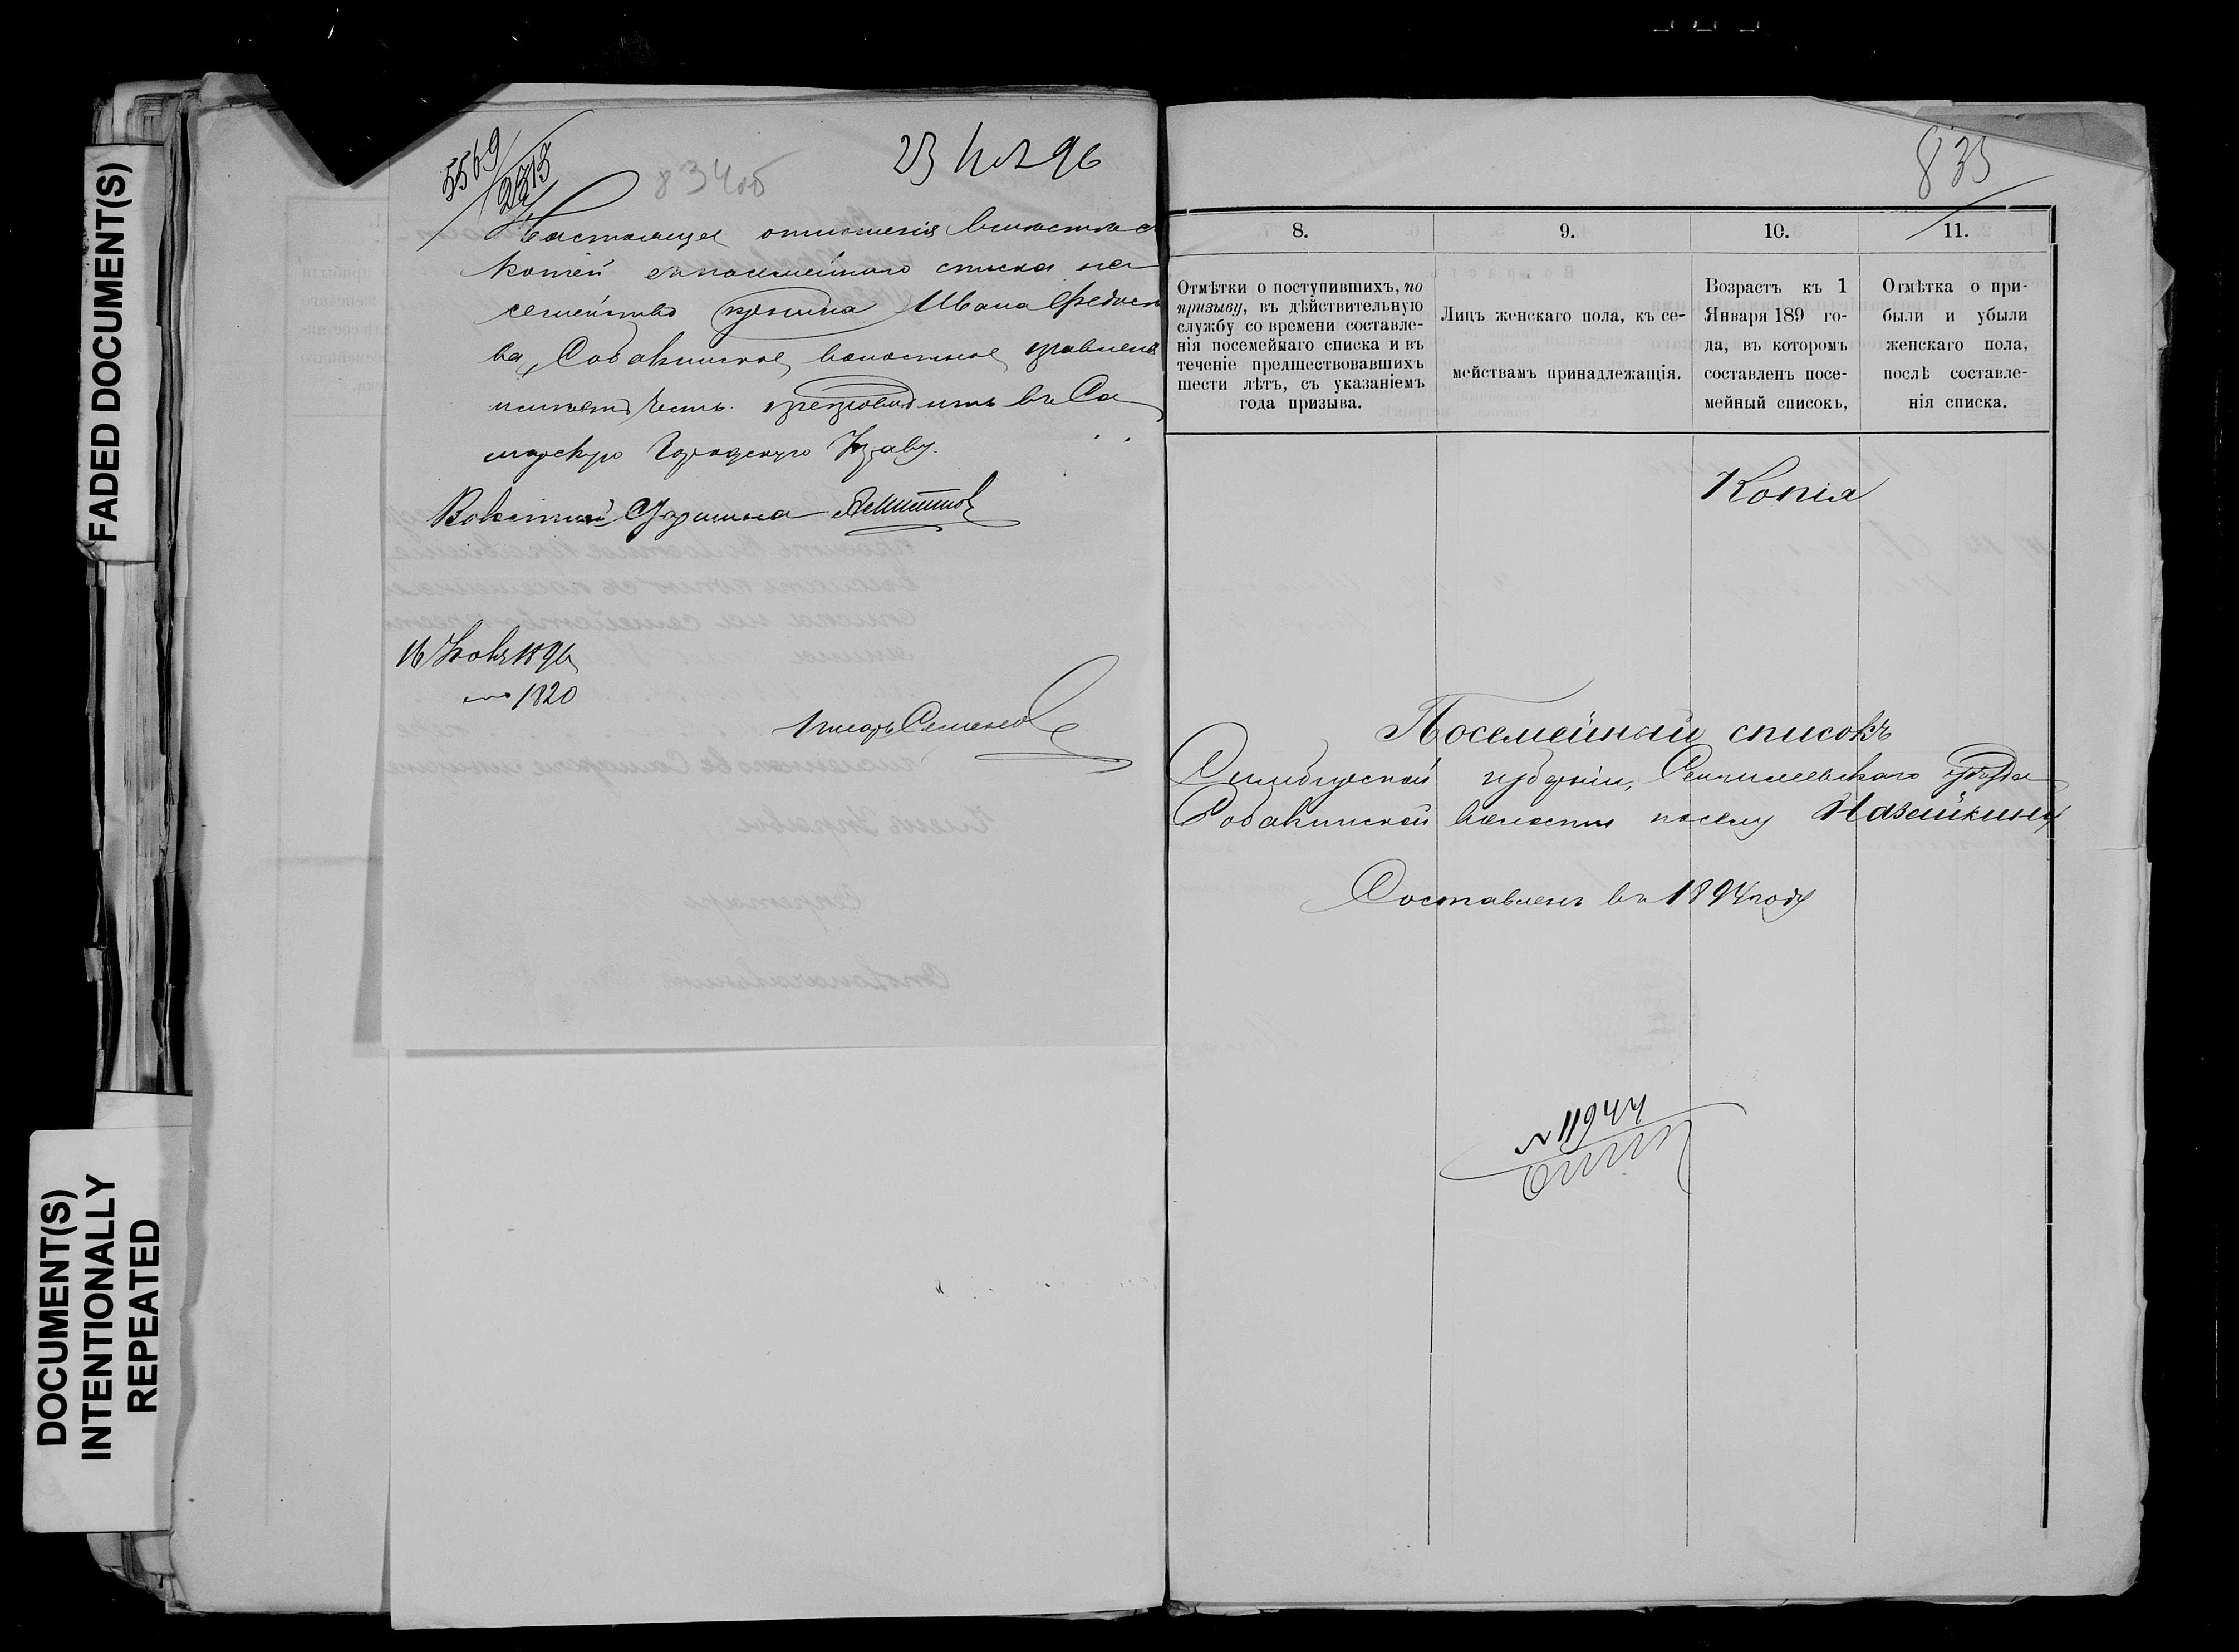 FADED DOCUMENT(S)
DOCUMENT(S)
INTENTIONALLY
REPEATED
5569
2515
834об
23 Ноя 96
Настоящее отношенія волостное съ
копіей съ посемейнаго списка на
семейство крестьянина Ивана Федосѣ
ва, Собакинское волостное правленіе
имѣетъ честь препроводить въ Са
марскую Городскую Управу.
Волостной Старшина
16 Ноября 1896
№ 1820
Писарь Семенов
835
8.
9.
10.
11.
Отмѣтки о поступившихъ, по
призыву, въ дѣйствительную
службу со времени составле-
нія посемейнаго списка и въ
теченіе предшествовавшихъ
шести лѣтъ, съ указаніемъ
года призыва.
Лицъ женскаго пола, къ се-
мействамъ принадлежащія.
Возрастъ къ 1
Января 189 го-
да, въ которомъ
составленъ посе-
мейный списокъ,
Отмѣтка о при-
были и убыли
женскаго пола,
послѣ составле-
нія списка.
Копія
Посемейный списокъ
Симбирской губерніи, Сенгилеевскаго уѣзда
Собакинской волости по селу Назайкину
Составленъ въ 1894 году
№ 11944